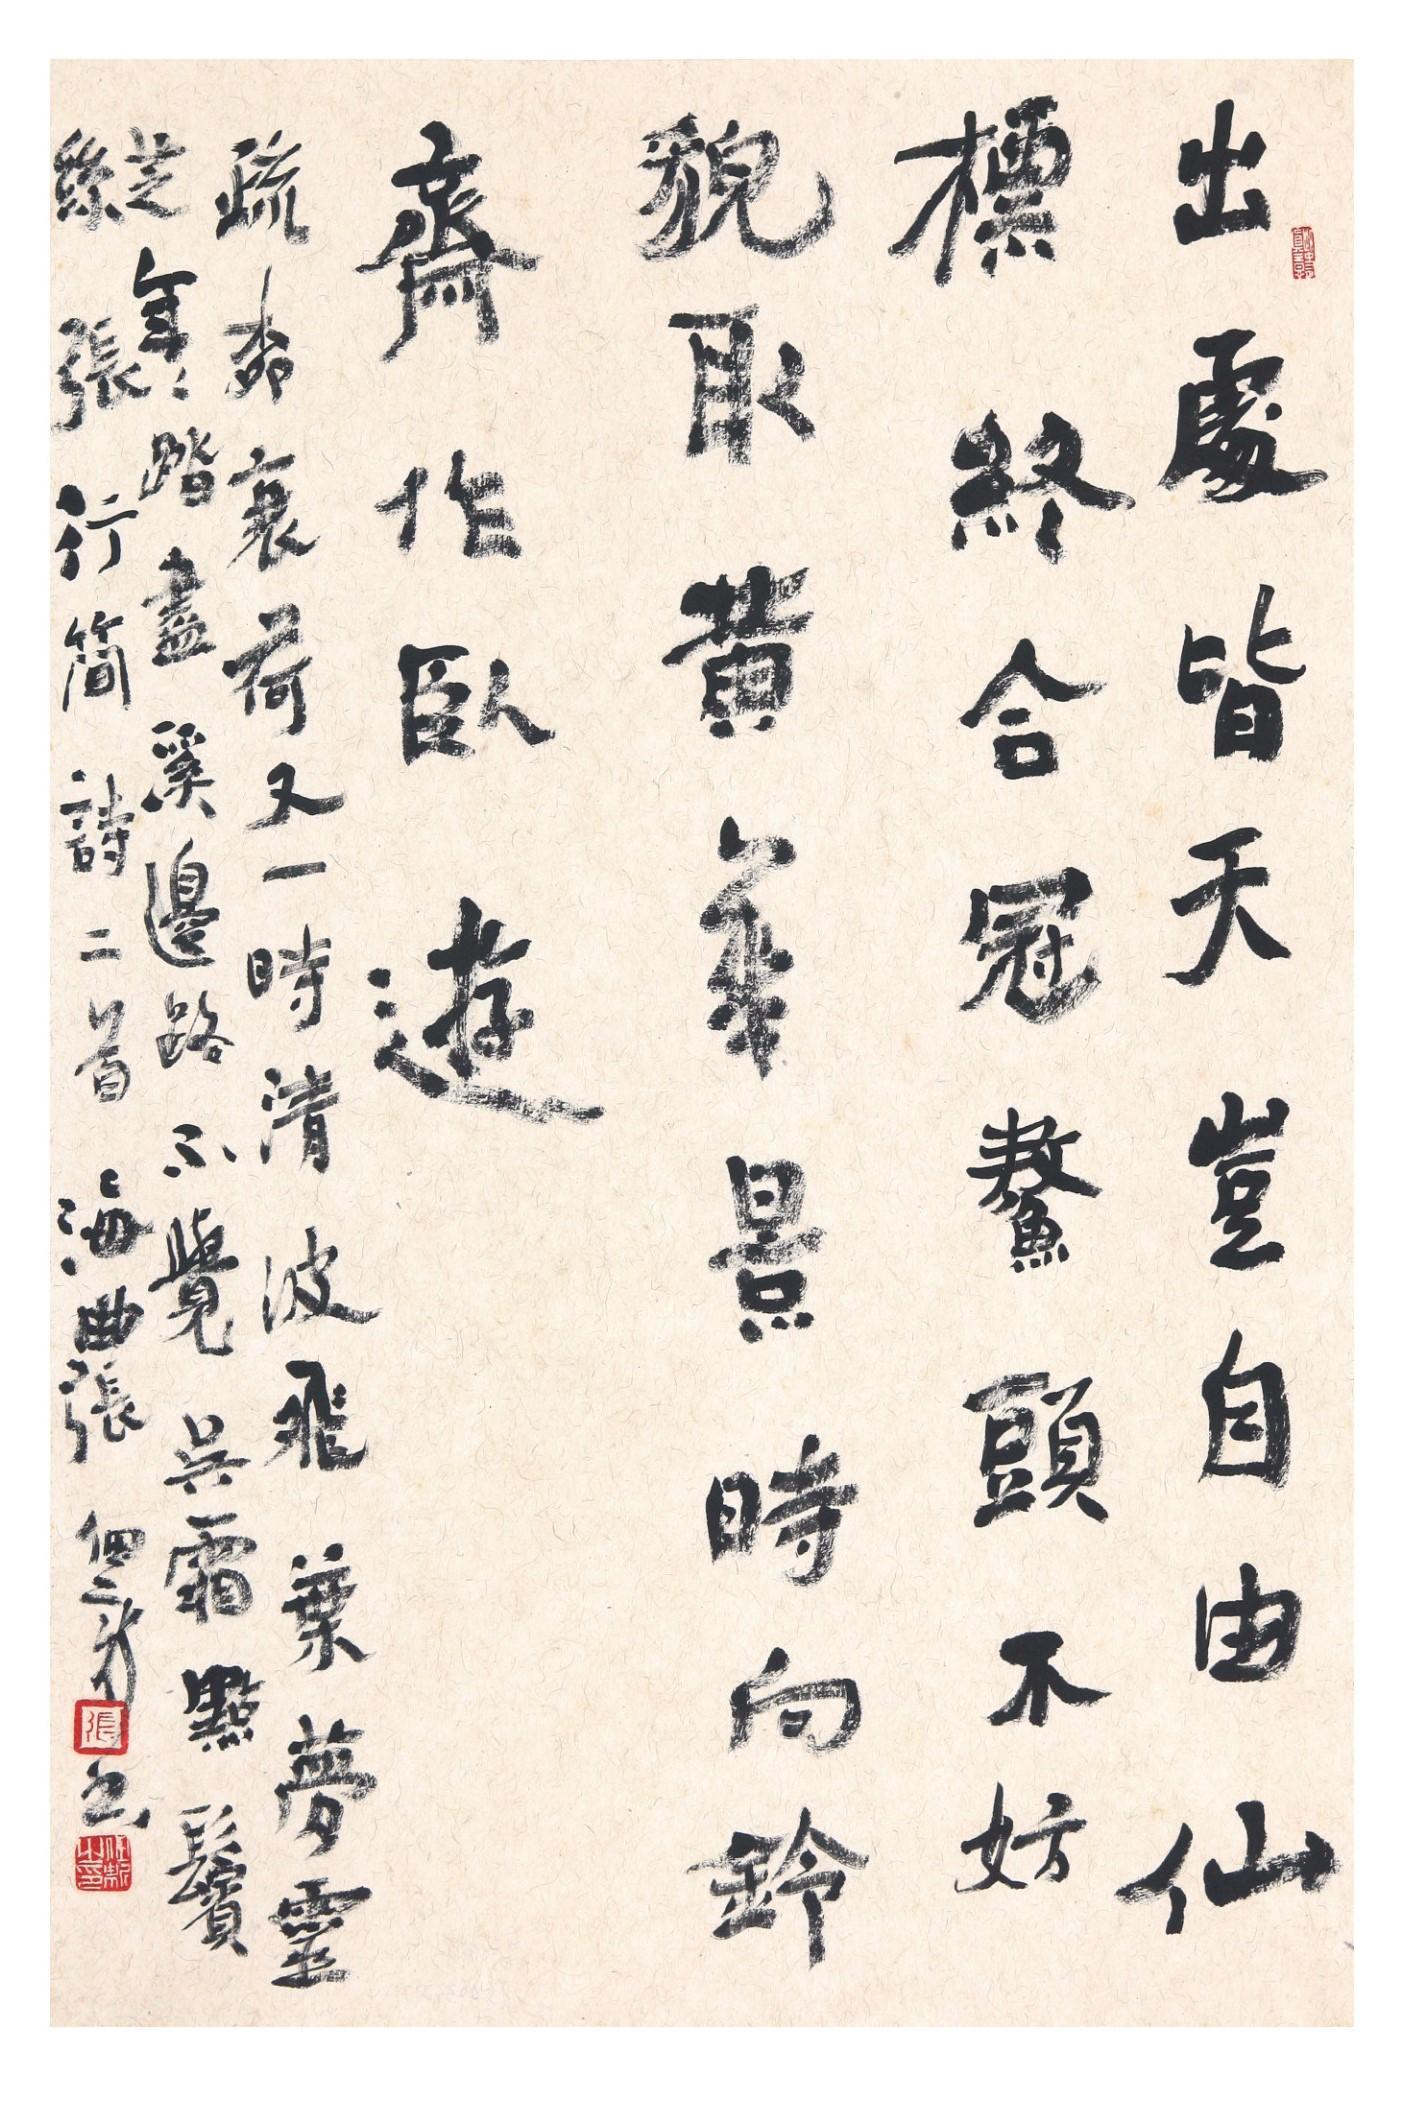 出處皆天豈自由仙
標終合冠鰲頭不妨
貌取黃華景時向鈴
齋作臥遊
疏柳衰荷又一時清波飛葉夢靈
芝年〻踏盡溪邊路不覺吳霜點鬢
絲 張行簡詩二首 海曲張 書
張